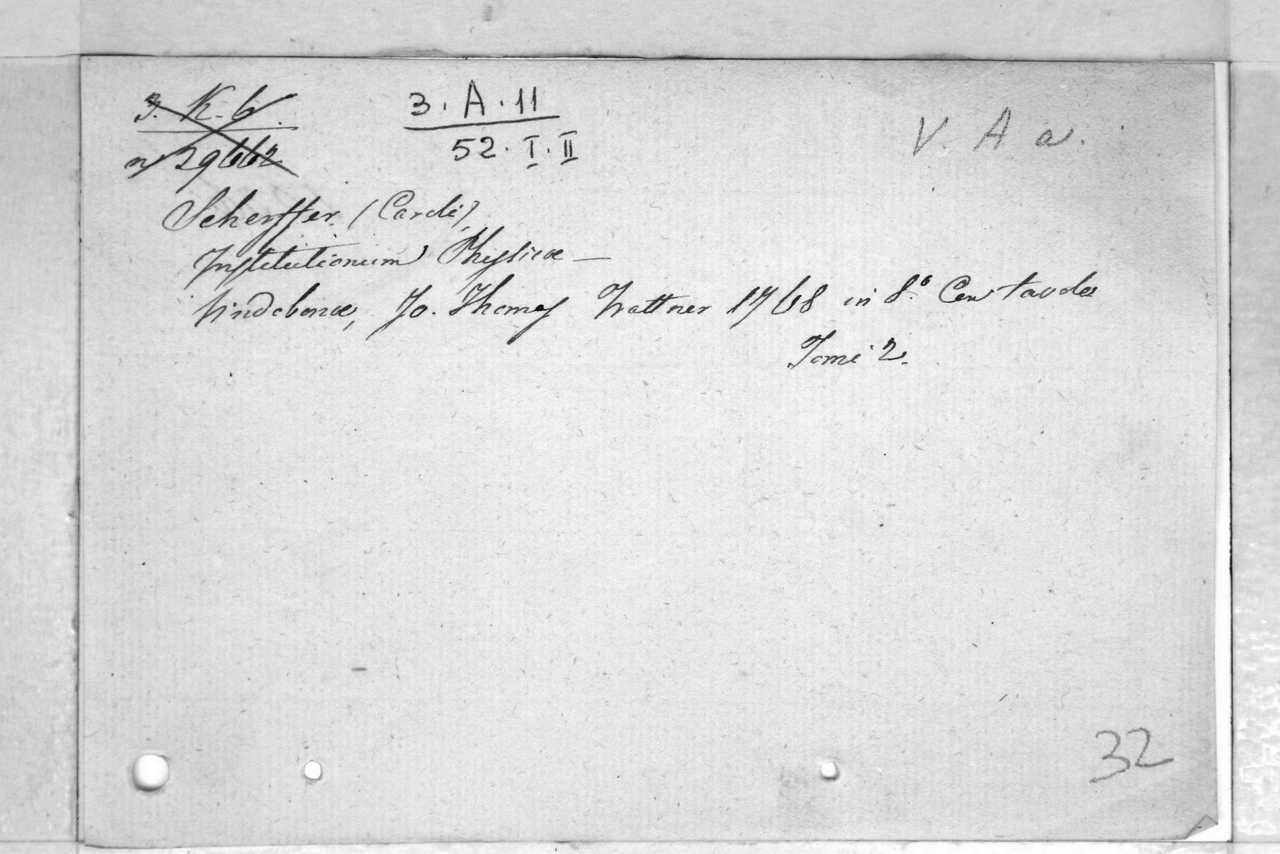 3. K. 6.
n 29662
3 · A · 11
52 · I · II
V. A a.
Scherffer (Carli)
Institutionum Physicæ —
Vindobonæ, Jo. Thomas Trattner 1768 in 8.° Con tavole
Tomi 2.
32